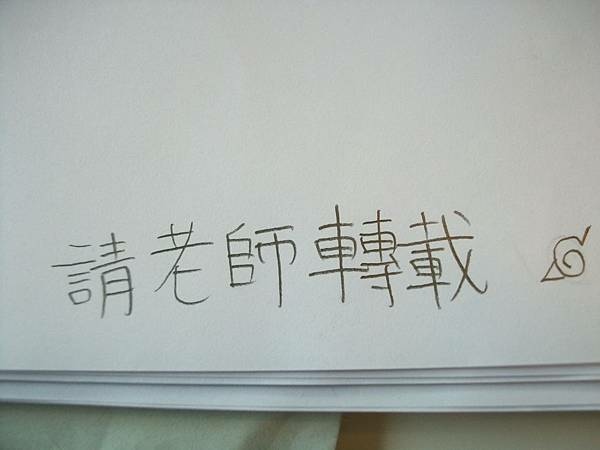 請老師轉載